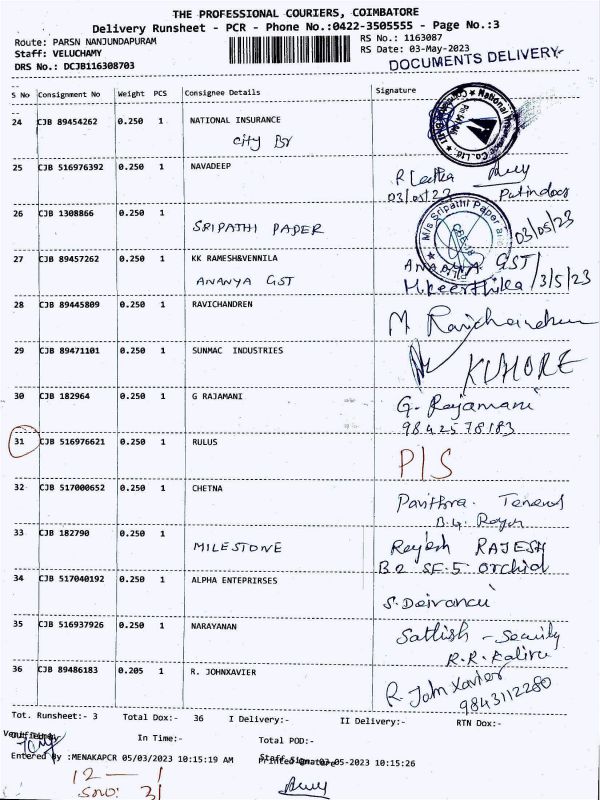 THE PROFESSIONAL COURIERS, COIMBATORE
Delivery Runsheet - PCR - Phone No.:0422-3505555 - Page No.:3
Route: PARSN NANJUNDAPURAM
RS No.: 1163087
Staff: VELUCHAMY
RS Date: 03-May-2023
DRS No.: DCJB116308703
DOCUMENTS DELIVERY
S No Consignment No Weight PCS Consignee Details Signature
24 CJB 89454262 0.250 1 NATIONAL INSURANCE
City Br
25 CJB 516976392 0.250 1 NAVADEEP
03/05/23
26 CJB 1308866 0.250 1
SRIPATHI PAPER
M/s Sripathi Paper and
03/05/23
27 CJB 89457262 0.250 1 KK RAMESH&VENNILA
ANANYA GST
ANANYA GST
H.Keerthika /3/5/23
28 CJB 89445809 0.250 1 RAVICHANDREN
M Ravichandren
29 CJB 89471101 0.250 1 SUNMAC INDUSTRIES
30 CJB 182964 0.250 1 G RAJAMANI
G. Rajamani
9842578183
31 CJB 516976621 0.250 1 RULUS
P/S
32 CJB 517000652 0.250 1 CHETNA
Pavithra.
33 CJB 182790 0.250 1
MILESTONE
Rajesh RAJESH
B2 SF-5 orchid
34 CJB 517040192 0.250 1 ALPHA ENTEPRIRSES
35 CJB 516937926 0.250 1 NARAYANAN
Sattish - Security
36 CJB 89486183 0.205 1 R. JOHNXAVIER
R. John Xavier
9843112280
Tot. Runsheet:- 3 Total Dox:- 36 I Delivery:- II Delivery:- RTN Dox:-
In Time:- Total POD:-
Entered By :MENAKAPCR 05/03/2023 10:15:19 AM 03-05-2023 10:15:26
12 — 1
SNO: 31